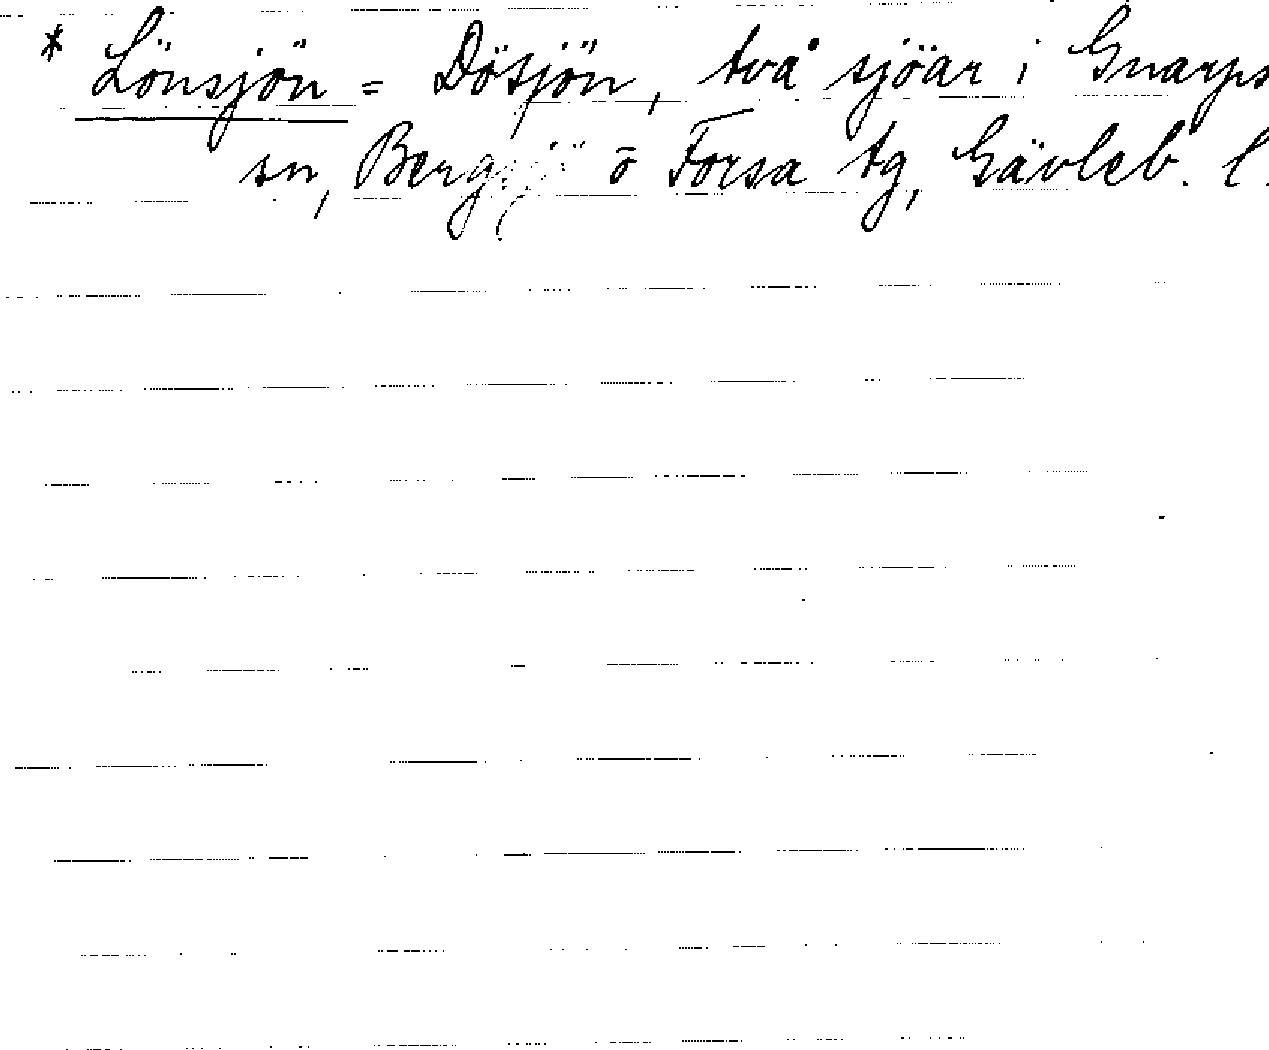 * Lönsjön = Dösjön, två sjöar i Gnarps
sn, Bergsjö o Forsa tg, Gävleb. l.